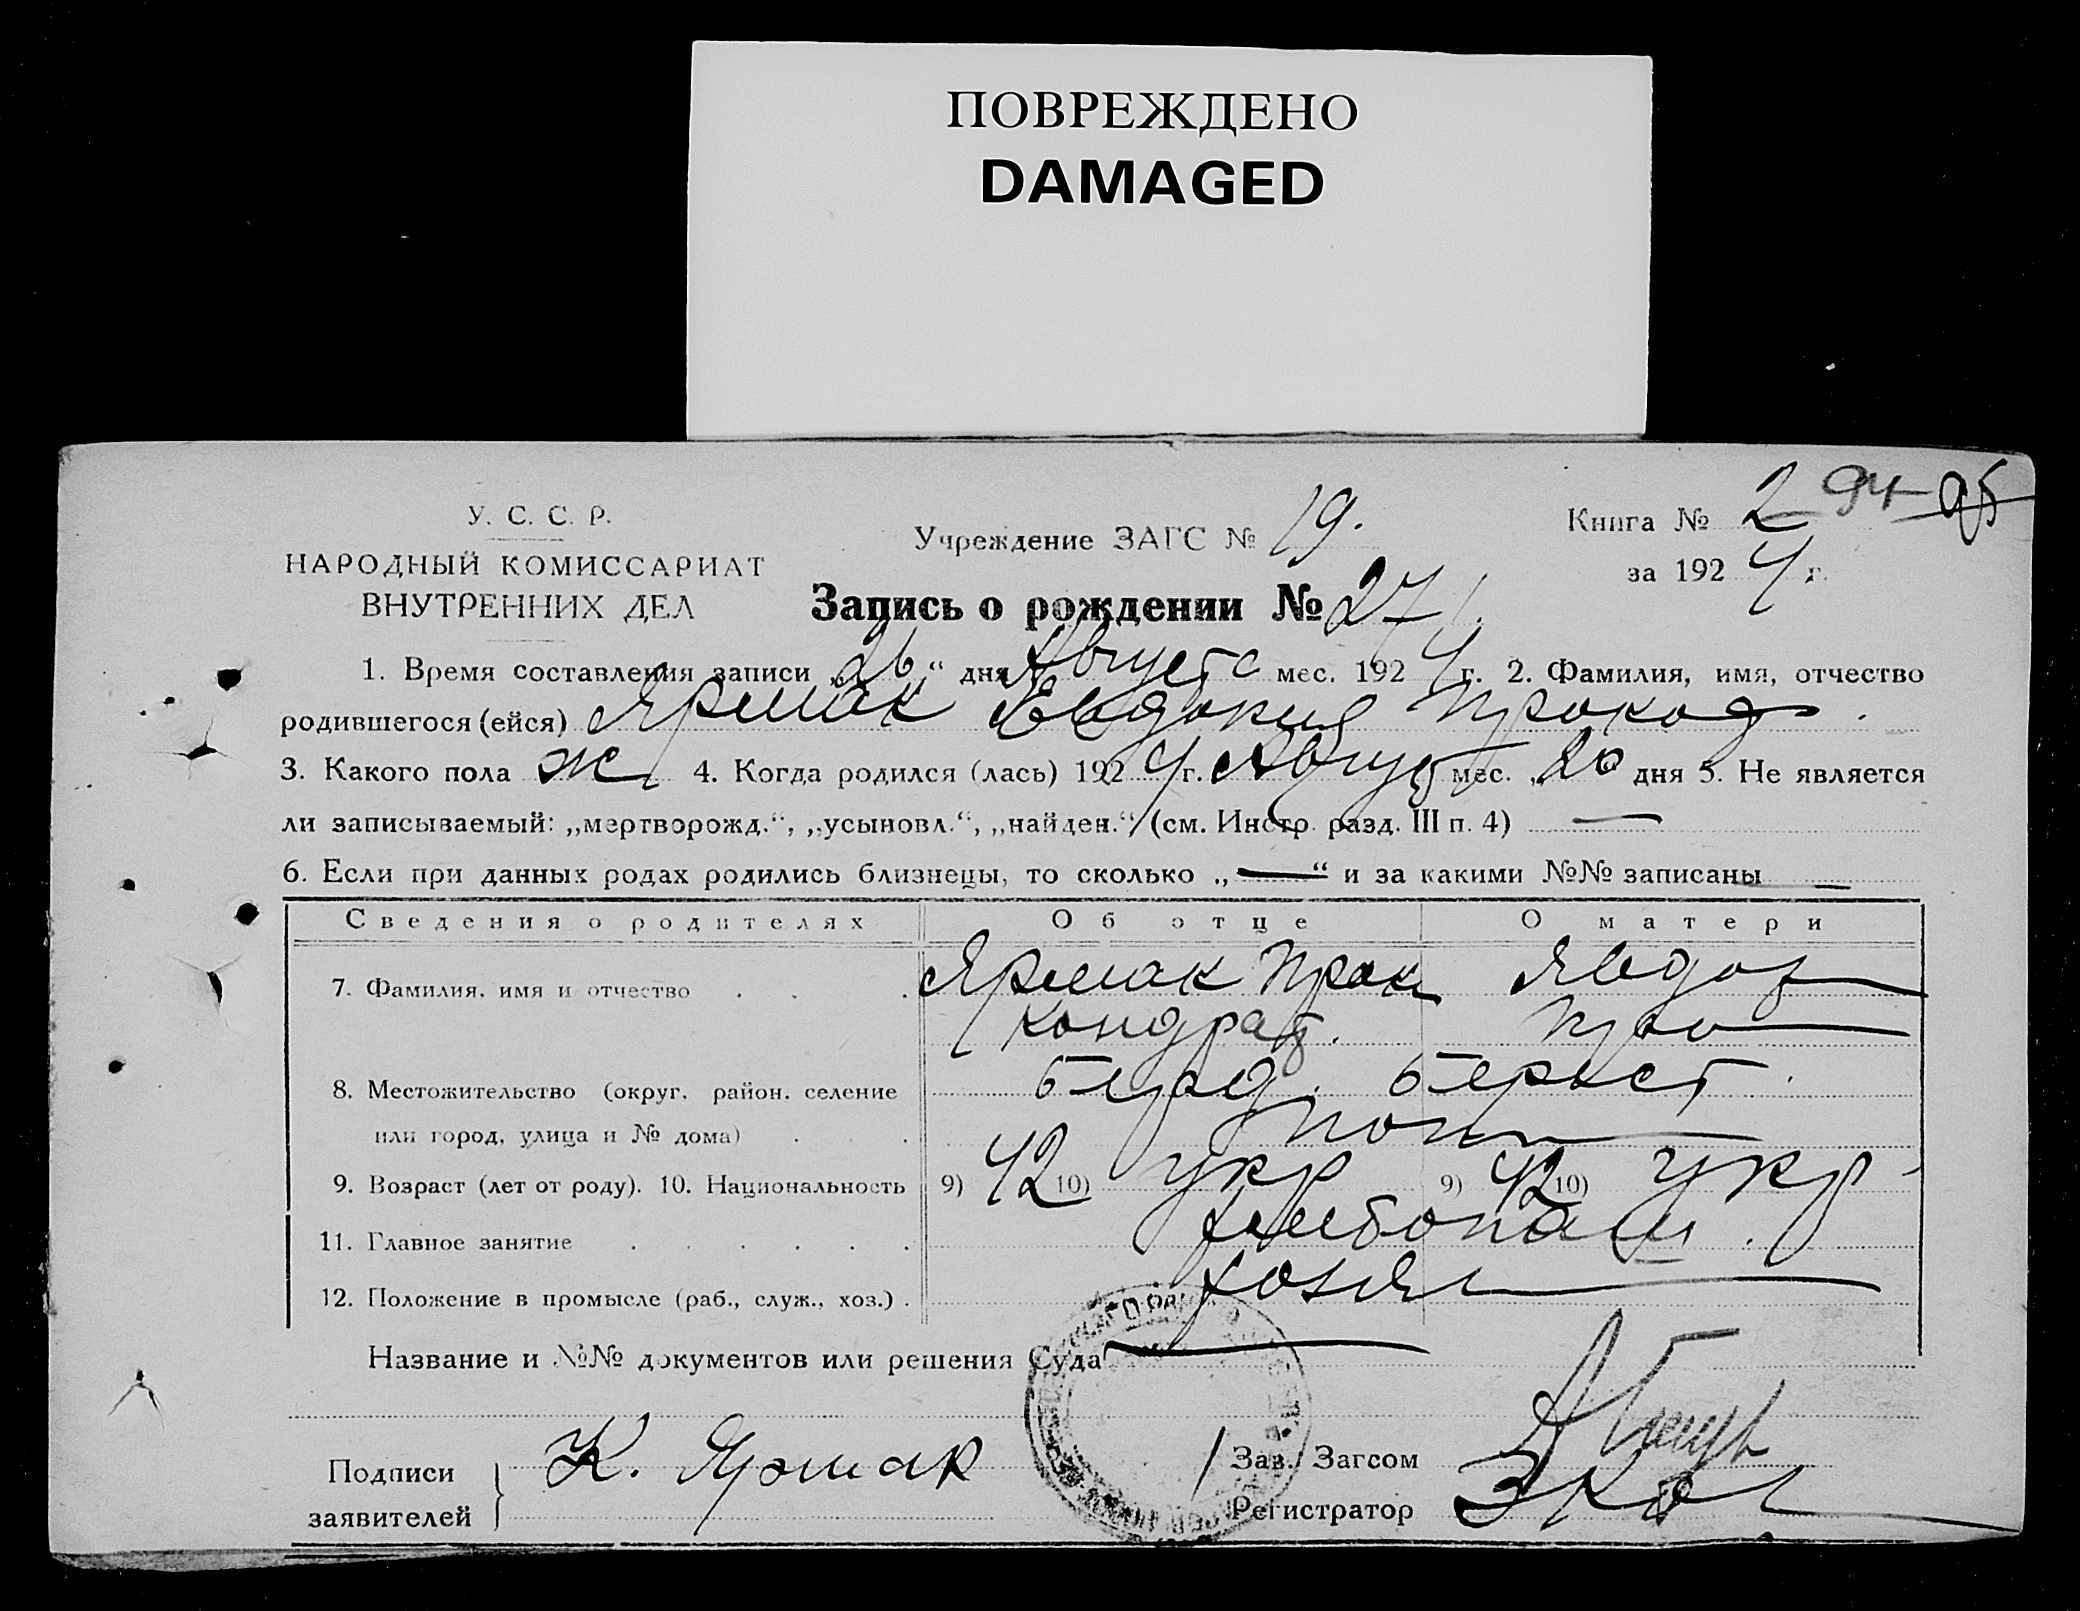 ПОВРЕЖДЕНО
DAMAGED
У. С. С. Р.
НАРОДНЫЙ КОМИССАРИАТ
ВНУТРЕННИХ ДЕЛ
Учреждение ЗАГС № 19.
Книга № 2 94 95
за 1924 г.
Запись о рождении № 271.
1. Время составления записи „26“ дня Августа мес. 1924 г. 2. Фамилия, имя, отчество
родившегося (ейся) Ярмак Евдокия Проков.
3. Какого пола ж 4. Когда родился (лась) 1924 г. Август мес. „20 дня 5. Не является
ли записываемый: „мертворожд.“, „усыновл.“, „найден.“ (см. Инстр. разд. III п. 4) —
6. Если при данных родах родились близнецы, то сколько „—“ и за какими №№ записаны —
Сведения о родителях Об отце О матери
7. Фамилия, имя и отчество Ярмак Прок Явдок
Кондрат.
8. Местожительство (округ, район, селение Берд. берест.
или город, улица и № дома)
9. Возраст (лет от роду). 10. Национальность 9) 42 10) укр 9) 42 10) укр
11. Главное занятие хлебопаш.
12. Положение в промысле (раб., служ., хоз.) хозяин
Название и №№ документов или решения Суда —
Подписи заявителей К. Ярмак
Зав. Загсом
Регистратор